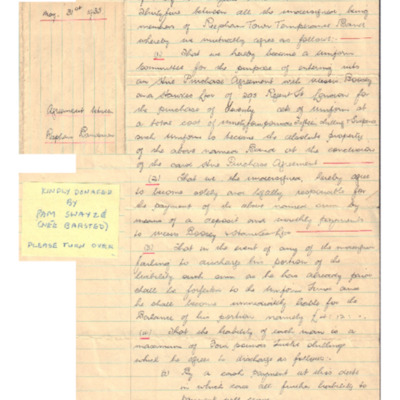 May. 31st 1933
Agreement between
KINDLY DONATED
BY
PAM SWAYZE
(NÉE BARSTED)
PLEASE TURN OVER
between all the undersigned being
members of Town Temperance Band
whereby we mutually agree as follows:-
(1) That we hereby become a uniform
Committee for the purpose of entering into
an Hire Purchase Agreement with messrs Boosey
and Hawkes Ltd of 295 Regent St London for
the purchase of set of uniform at
a total cost of
such uniform to become the absolute property
of the above named Band at the conclusion
of the said Hire Purchase Agreement.
(2) That we the undersigned, hereby agree
to become solely and legally responsible for
the payment of the above named sum by
means of a deposit and monthly payments
to messrs Boosey
(3) That in the event of any of the undersigned
failing to discharge his portion of the
liability such sum as he has already paid
shall be forfeited to the Uniform Fund and
he shall become immediately liable for the
Balance of his portion namely
(4) That the liability of each man is a
maximum of Four pounds Twelve shillings
which he agrees to discharge as follows.
(1) By a cash payment at this date
in which case all further liability to